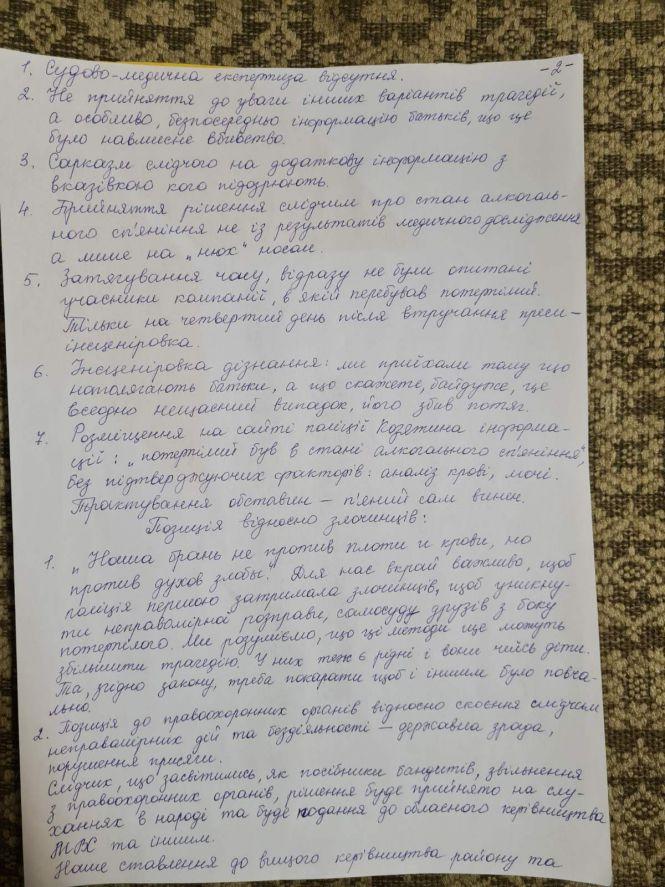 -2-
1. Судово-медична експертиза відсутня.
2. Не прийняття до уваги інших варіантів трагедії,
а особливо, безпосередньо інформацію батьків, що це
було навмисне вбивство.
3. Сарказм слідчого на додаткову інформацію з
вказівкою кого підозрюють.
4. Прийняття рішення слідчим про стан алкоголь-
ного сп'яніння не із результатів медичного дослідження
а лише на „нюх" носом.
5. Затягування часу, відразу не були опитані
учасники кампанії, в якій перебував потерпілий.
Тільки на четвертий день після втручання преси -
інсценіровка.
6. Інсценіровка дізнання: ми приїхали тому що
наполягають батьки, а що скажете, байдуже, це
всеодно нещасний випадок, його збив потяг.
7. Розміщення на сайті поліції Козятина інформа-
цій: „потерпілий був в стані алкогольного сп'яніння",
без підтверджуючих факторів: аналіз крові, мочі.
Трактування обставин - п'яний сам винен.
Позиція відносно злочинців:
1. „Наша брань не против плоти и крови, но
против духов злобы." Для нас вкрай важливо, щоб
поліція першою затримала злочинців, щоб уникну-
ти неправомірної розправи, самосуду друзів з боку
потерпілого. Ми розуміємо, що ці методи ще можуть
збільшити трагедію. У них теж є рідні і вони чийсь діти.
Та, згідно закону, треба покарати щоб і іншим було повча-
льно.
2. Позиція до правоохоронних органів відносно скоєння слідчим
неправомірних дій та бездіяльності - державна зрада,
порушення присяги.
Слідчих, що засвітились, як посібники бандитів, звільнення
з правоохоронних органів, рішення буде прийнято на слу-
ханнях в народі та буде подання до обласного керівництва
та іншим.
Наше ставлення до вищого керівництва району та